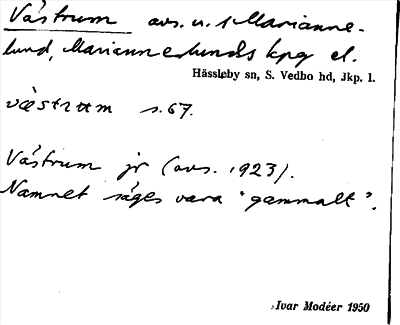 Västrum avs. u. 1 Marianne-
lund, Mariannelunds kpg el.
Hässleby sn, S. Vedbo hd, Jkp. l.
väst rum s. 67.
Västrum jr (avs. 1923).
Namnet säges vara "gammalt".
Ivar Modéer 1950